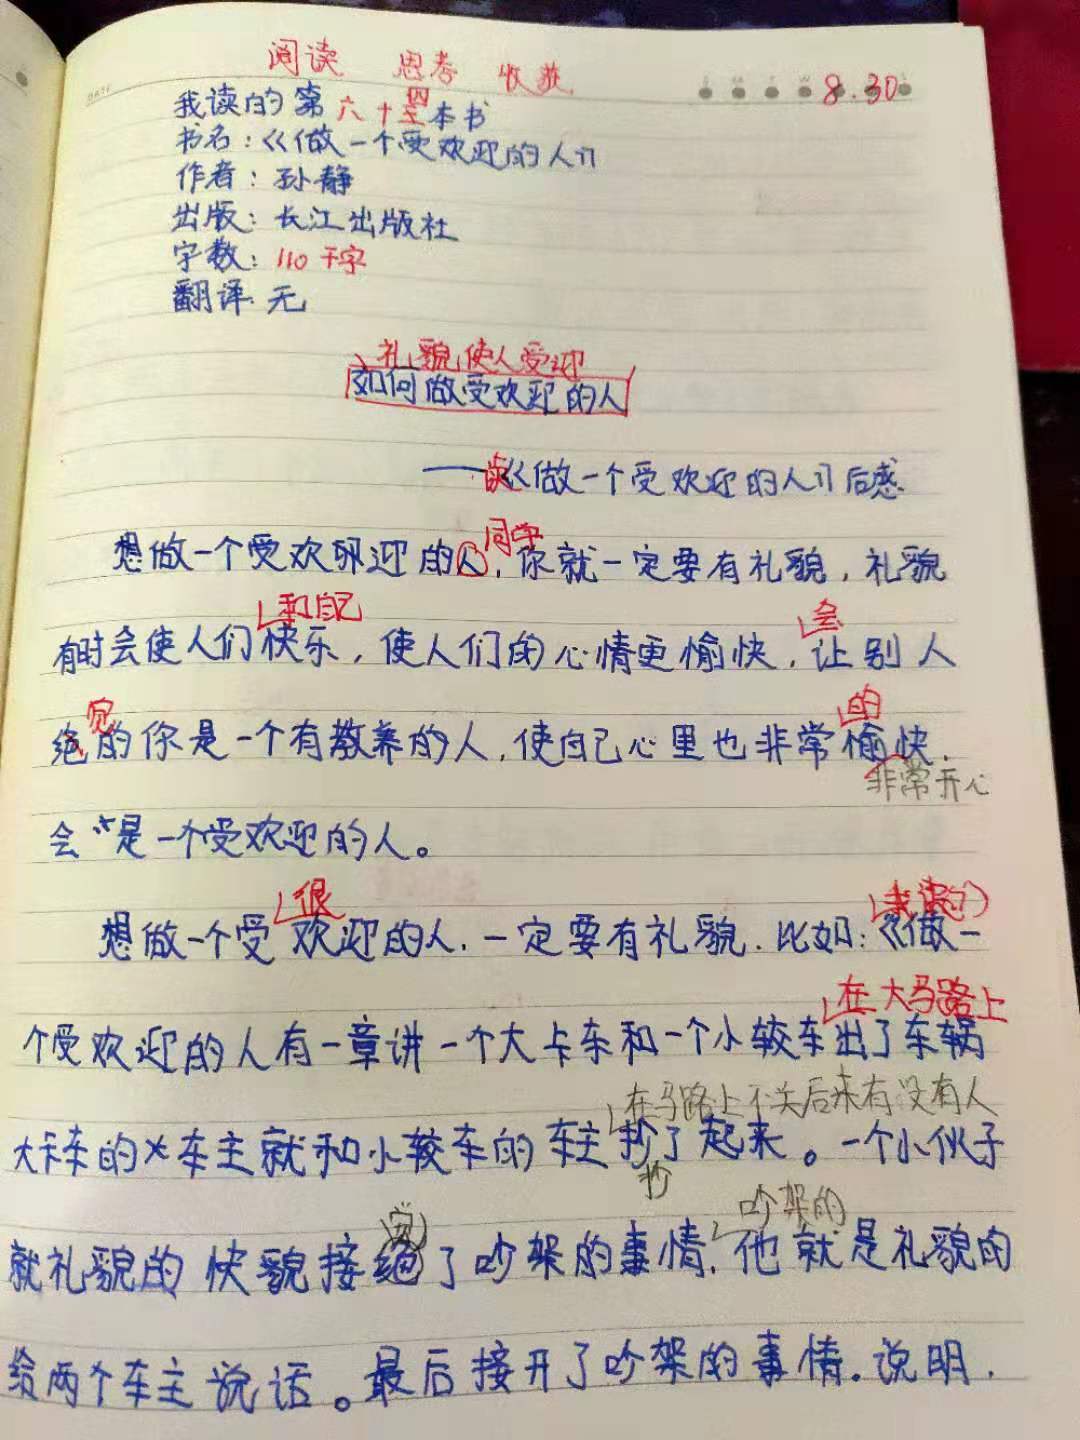 阅读 思考 收获
8.30
我读的第六十四本书
书名:《做一个受欢迎的人》
作者:孙静
出版:长江出版社
字数:110千字
翻译:无
礼貌使人受迎
如何做受欢迎的人
——读《做一个受欢迎的人》后感
同学
想做一个受欢迎的人,你就一定要有礼貌,礼貌
和自己 会
有时会使人们快乐,使人们的心情更愉快,让别人
觉 的
的你是一个有教养的人,使自己心里也非常愉快,
非常开心
会是一个受欢迎的人。
很 我读的
想做一个受欢迎的人,一定要有礼貌.比如:《做一
在大马路上
个受欢迎的人有一章讲一个大卡车和一个小较车出了车祸
在马路上不关后来有没有人
大卡车的车主就和小较车的车主抄了起来。一个小伙子
抄
吵架的
就礼貌的快貌接了吵架的事情,他就是礼貌的
给两个车主说话。最后接开了吵架的事情.说明,